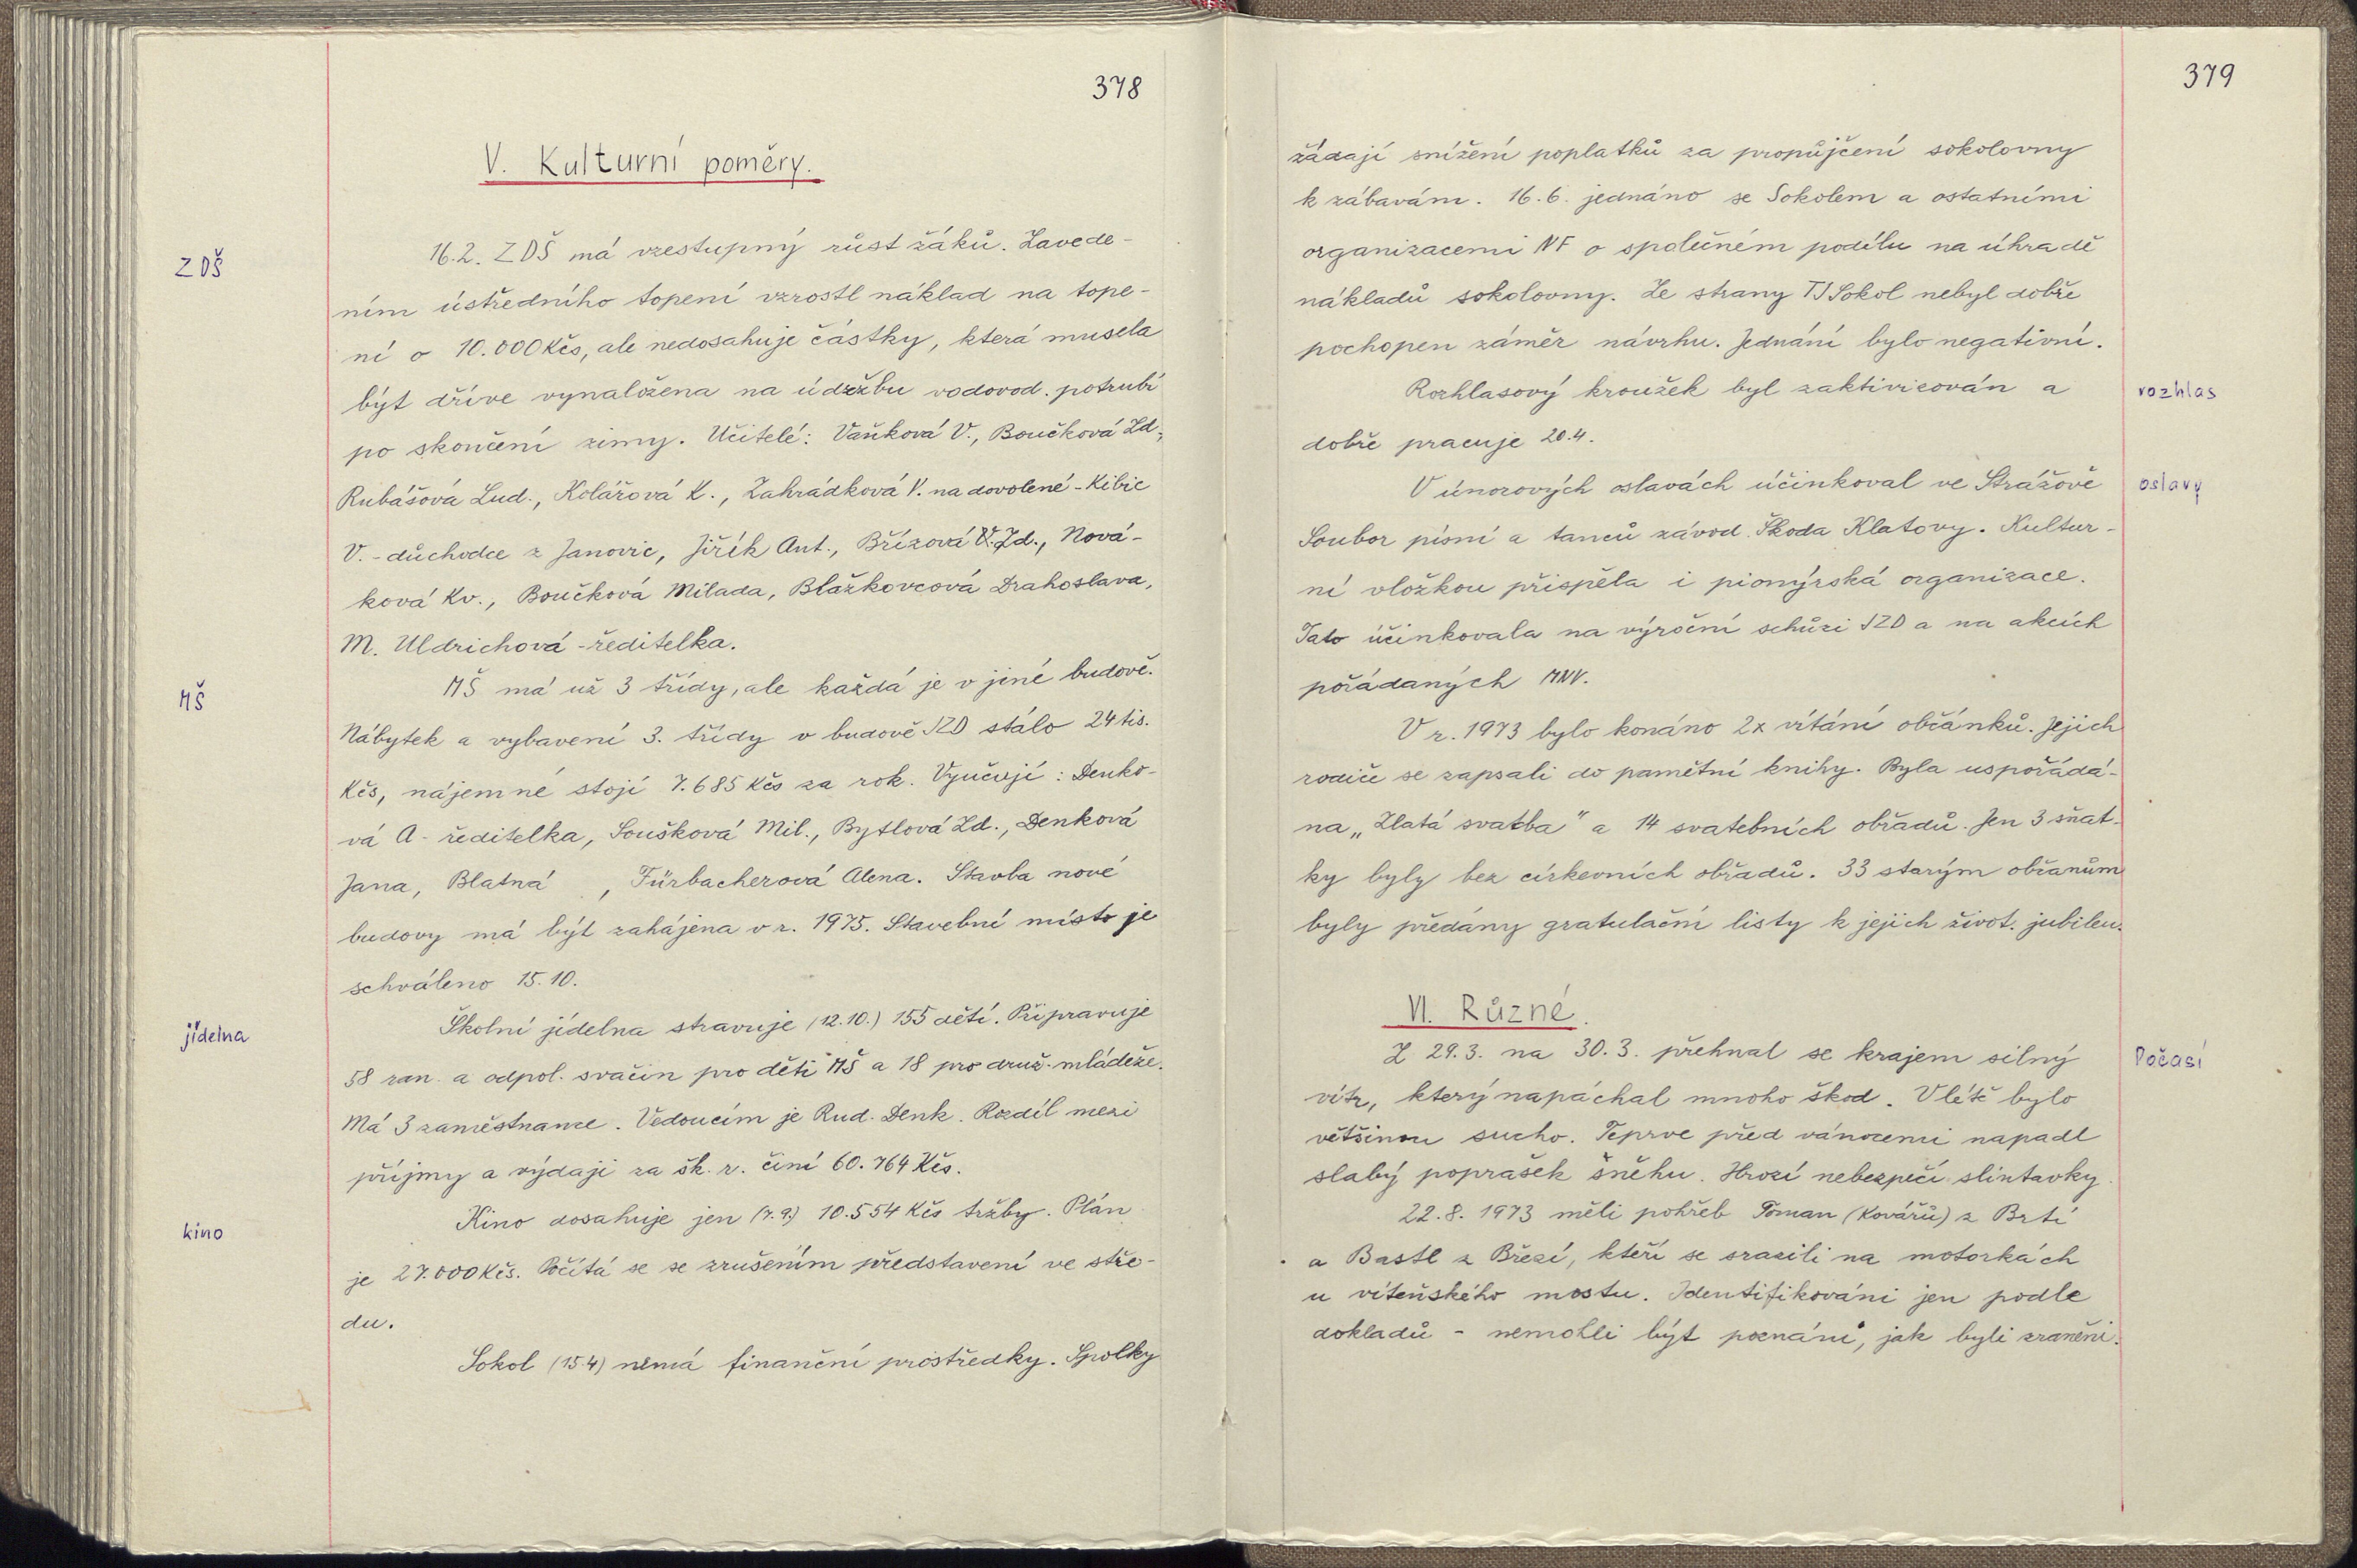 378
V. Kulturní poměry.
ZDŠ
16.2. ZDŠ má vzestupný růst žáků. Zavede-
ním ústředního topení vzrostl náklad na tope-
ní o 10.000 Kčs, ale nedosahuje částky, která musela
být dříve vynaložena na údržbu vodovod. potrubí
po skončení zimy. Učitelé: Vaňková V., Boučková Zd.,
Rubášová Lud., Kolářová K., Zahrádková V. na dovolené - Kibic
V. - důchodce z Janovic, Jiřík Ant., Břízová Zd., Nová-
ková Kv., Boučková Milada, Blažkovcová Drahoslava,
M. Uldrichová - ředitelka.
MŠ
MŠ má už 3 třídy, ale každá je v jiné budově.
Nábytek a vybavení 3. třídy v budově JZD stálo 24 tis.
Kčs, nájemné stojí 7.685 Kčs za rok. Vyučují: Denko-
vá A - ředitelka, Soušková Mil., Bytlová Zd., Denková
Jana, Blatná , Fürbacherová Alena. Stavba nové
budovy má být zahájena v r. 1975. Stavební místo je
schváleno 15.10.
jídelna
Školní jídelna stravuje (12.10.) 155 dětí. Připravuje
58 ran. a odpol. svačin pro děti MŠ a 18 pro druž. mládeže.
Má 3 zaměstnance. Vedoucím je Rud. Denk. Rozdíl mezi
příjmy a výdaji za šk. r. činí 60.764 Kčs.
kino
Kino dosahuje jen (7.9.) 10.554 Kčs tržby. Plán
je 27.000 Kčs. Počítá se se zrušením představení ve stře-
du.
Sokol (15.4) nemá finanční prostředky. Spolky
379
žádají snížení poplatků za propůjčení sokolovny
k zábavám. 16.6. jednáno se Sokolem a ostatními
organizacemi NF o společném podílu na úhradě
nákladů sokolovny. Ze strany TJ Sokol nebyl dobře
pochopen záměr návrhu. Jednání bylo negativní.
Rozhlasový kroužek byl zaktivizován a
rozhlas
dobře pracuje 20.4.
V únorových oslavách účinkoval ve Strážově
oslavy
Soubor písní a tanců závod. Škoda Klatovy. Kultur-
ní vložkou přispěla i pionýrská organizace.
Tato účinkovala na výroční schůzi JZD a na akcích
pořádaných MNV.
V r. 1973 bylo konáno 2x vítání občánků. Jejich
rodiče se zapsali do pamětní knihy. Byla uspořádá-
na „Zlatá svatba" a 14 svatebních obřadů. Jen 3 sňat-
ky byly bez církevních obřadů. 33 starým občanům
byly předány gratulační listy k jejich život. jubileu.
VI. Různé.
Z 29.3. na 30.3. přehnal se krajem silný
Počasí
vítr, který napáchal mnoho škod. V létě bylo
většinou sucho. Teprve před vánocemi napadl
slabý poprašek šněhu. Hrozí nebezpečí slintavky.
22.8. 1973 měli pohřeb Toman (Kovářů) z Brtí
a Bastl z Březí, kteří se srazili na motorkách
u víteňského mostu. Identifikováni jen podle
dokladů - nemohli být poznáni, jak byli zraněni.